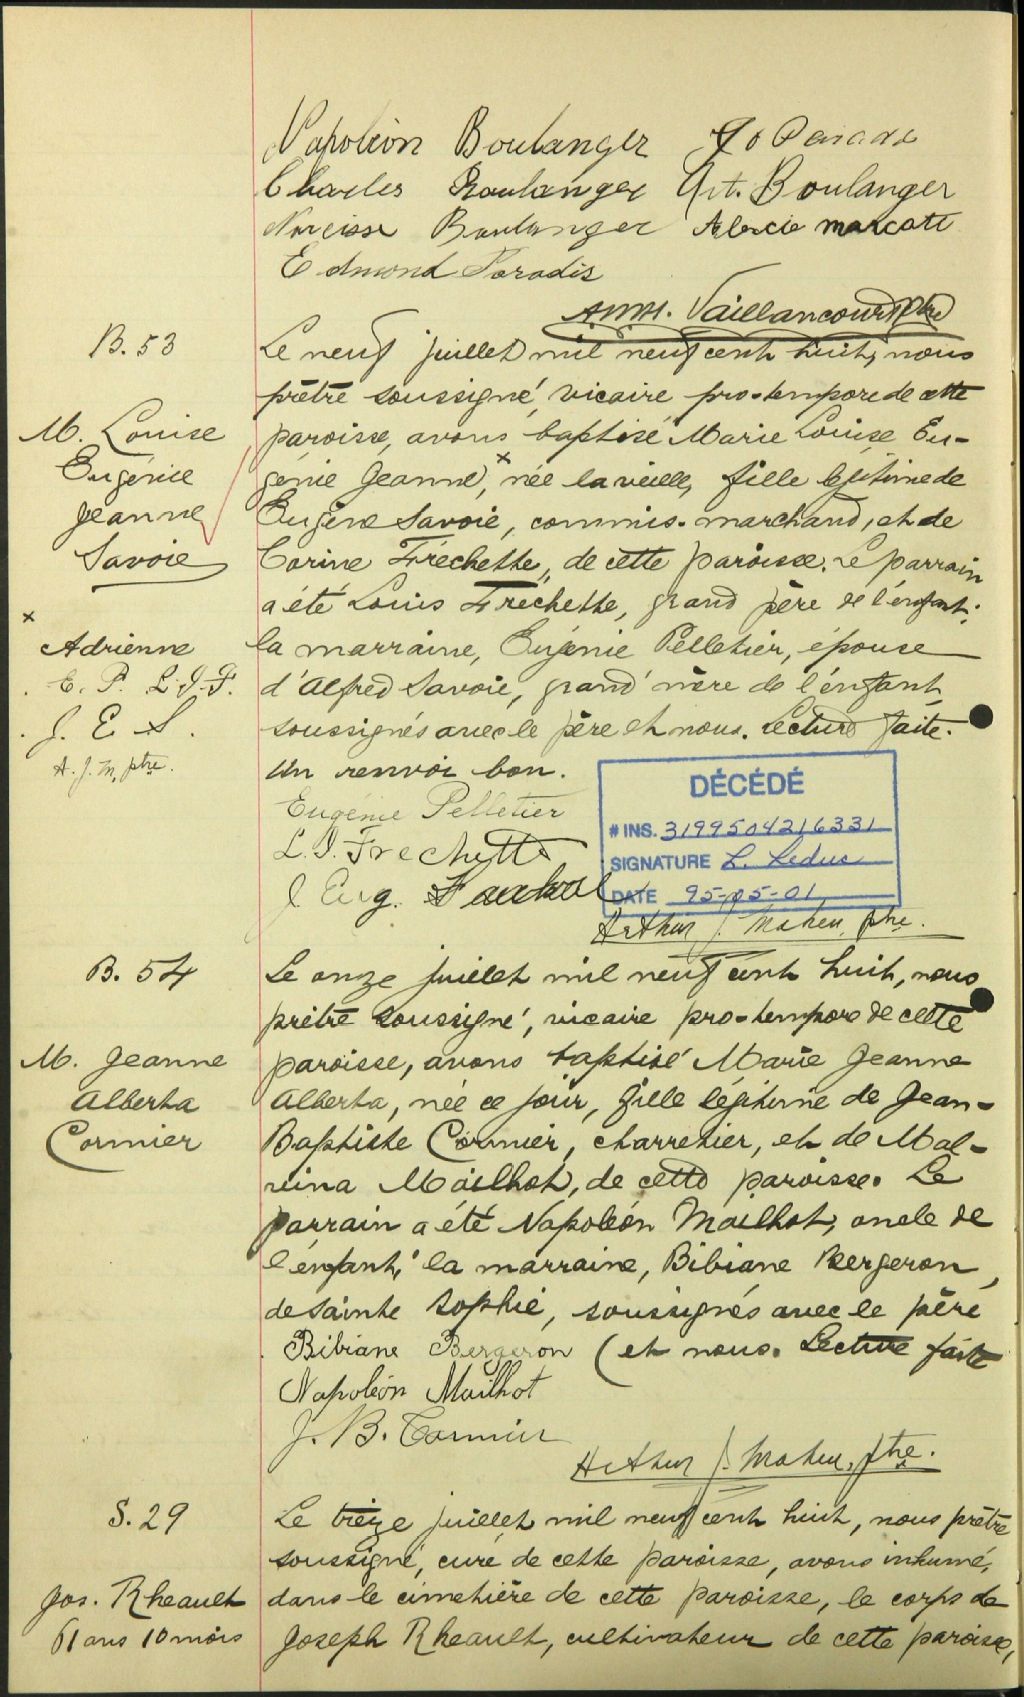 Napoléon Boulanger Jo Paradis
Charles Boulanger Art. Boulanger
Narcisse Boulanger marcotte
Edmond Paradis
Vaillancourt ptre
B. 53
Le neuf juillet mil neuf cent huit, nous
prêtre soussigné, vicaire pro-tempore de cette
M. Louise
paroisse, avons baptisé Marie Louise Eu-
Eugénie
génie Jeanne, x née la veille, fille légitime de
Jeanne
Eugène Savoie, commis-marchand, et de
Savoie
Corine Fréchette, de cette paroisse. Le parrain
a été Louis Fréchette, grand père de l'enfant;
x
Adrienne
la marraine, Eugénie Pelletier, épouse
E. P. L.J.F.
d'Alfred Savoie, grand'mère de l'enfant
J. E S.
soussignés avec le père et nous. Lecture faite.
A. J. M, ptre.
Un renvoi bon.
DÉCÉDÉ
# INS. 3199504216331
SIGNATURE L. Leduc
DATE 95-05-01
Eugénie Pelletier
L.J. Frechette
J Eug.
Arthur J. Maheu, ptre.
B. 54
Le onze juillet mil neuf cent huit, nous
prêtre soussigné, vicaire pro-tempore de cette
M. Jeanne
paroisse, avons baptisé Marie Jeanne
Alberta
Alberta, née ce jour, fille légitime de Jean-
Cormier
Baptiste Cormier, charretier, et de Mal-
vina Mailhot, de cette paroisse. Le
parrain a été Napoléon Mailhot, oncle de
l'enfant; la marraine, Bibiane Bergeron,
de Sainte Sophie, soussignés avec le père
Bibiane Bergeron (et nous. Lecture faite
Napoléon Mailhot
J. B. Cormier
Arthur J. Maheu, ptre.
S. 29
Le treize juillet mil neuf cent huit, nous prêtre
soussigné, curé de cette paroisse, avons inhumé,
Jos. Rheault
dans le cimetière de cette paroisse, le corps de
61 ans 10 mois
Joseph Rheault, cultivateur de cette paroisse,